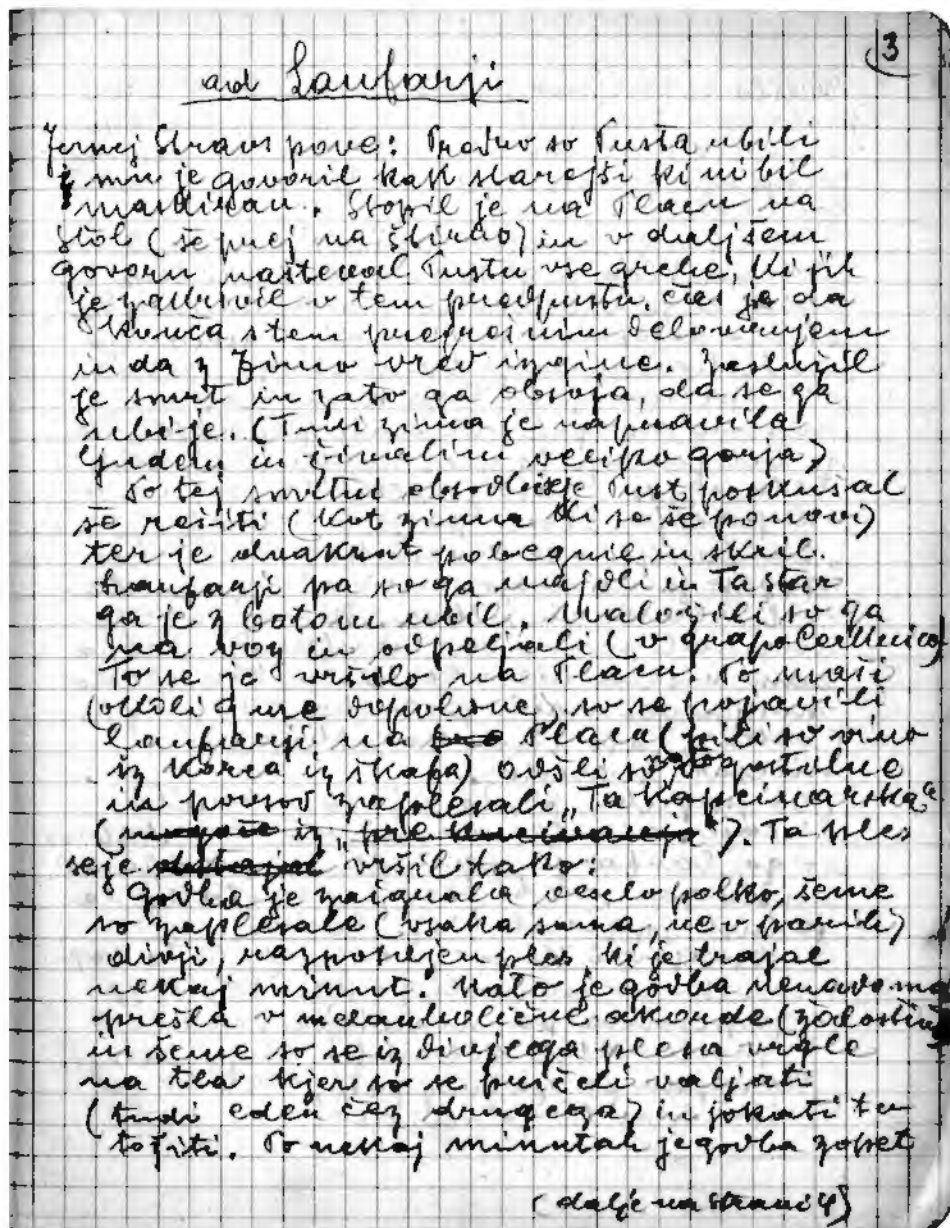 3
ad Laufarji
Jernej Straus pove: Predno so Pusta ubili
mu je govoril kak starejši ki ni bil
maškiran. Stopil je na Placu na
stol (še prej na štirno) in v daljšem
govoru našteval Pustu vse grehe, ki jih
je zakrivil v tem predpustu, čas je da
konča s tem pregrešnim delovanjem
in da z Zimo vred izgine. Zaslužil
je smrt in zato ga obsoja, da se ga
ubije. (Tudi zima je napravila
ljudem in živalim veliko gorja)
Po tej smrtni obsodbi je Pust poskušal
se rešiti (kot zima ki se še ponovi)
ter je dvakrat pobegnil in skril.
Laufarji pa so ga našli in Ta star
ga je z batom ubil. Naložili so ga
na voz in odpeljali (v grapo Cerknico)
To se je vršilo na Placu. Po maši
(okoli 9 ure dopoldne) so se pojavili
laufarji na Placu (pili so vino
iz korca iz škafa) odšli so gostilne
in povsod zaplesali „Ta kapcinarska“
(mogoče iz „prekucivanja“). Ta ples
se je vršil tako:
Godba je zaigrala veselo polko, šeme
so zaplesale (vsaka sama, ne v parih)
divji, razposajen ples, ki je trajal
nekaj minut. Nato je godba nenadoma
prešla v melanholične akorde (žalostne)
in šeme so se iz divjega plesa vrgle
na tla kjer so se pričeli valjati
(tudi eden čez drugega) in jokati ter
tožiti. Po nekaj minutah je godba zopet
(dalje na strani 4)